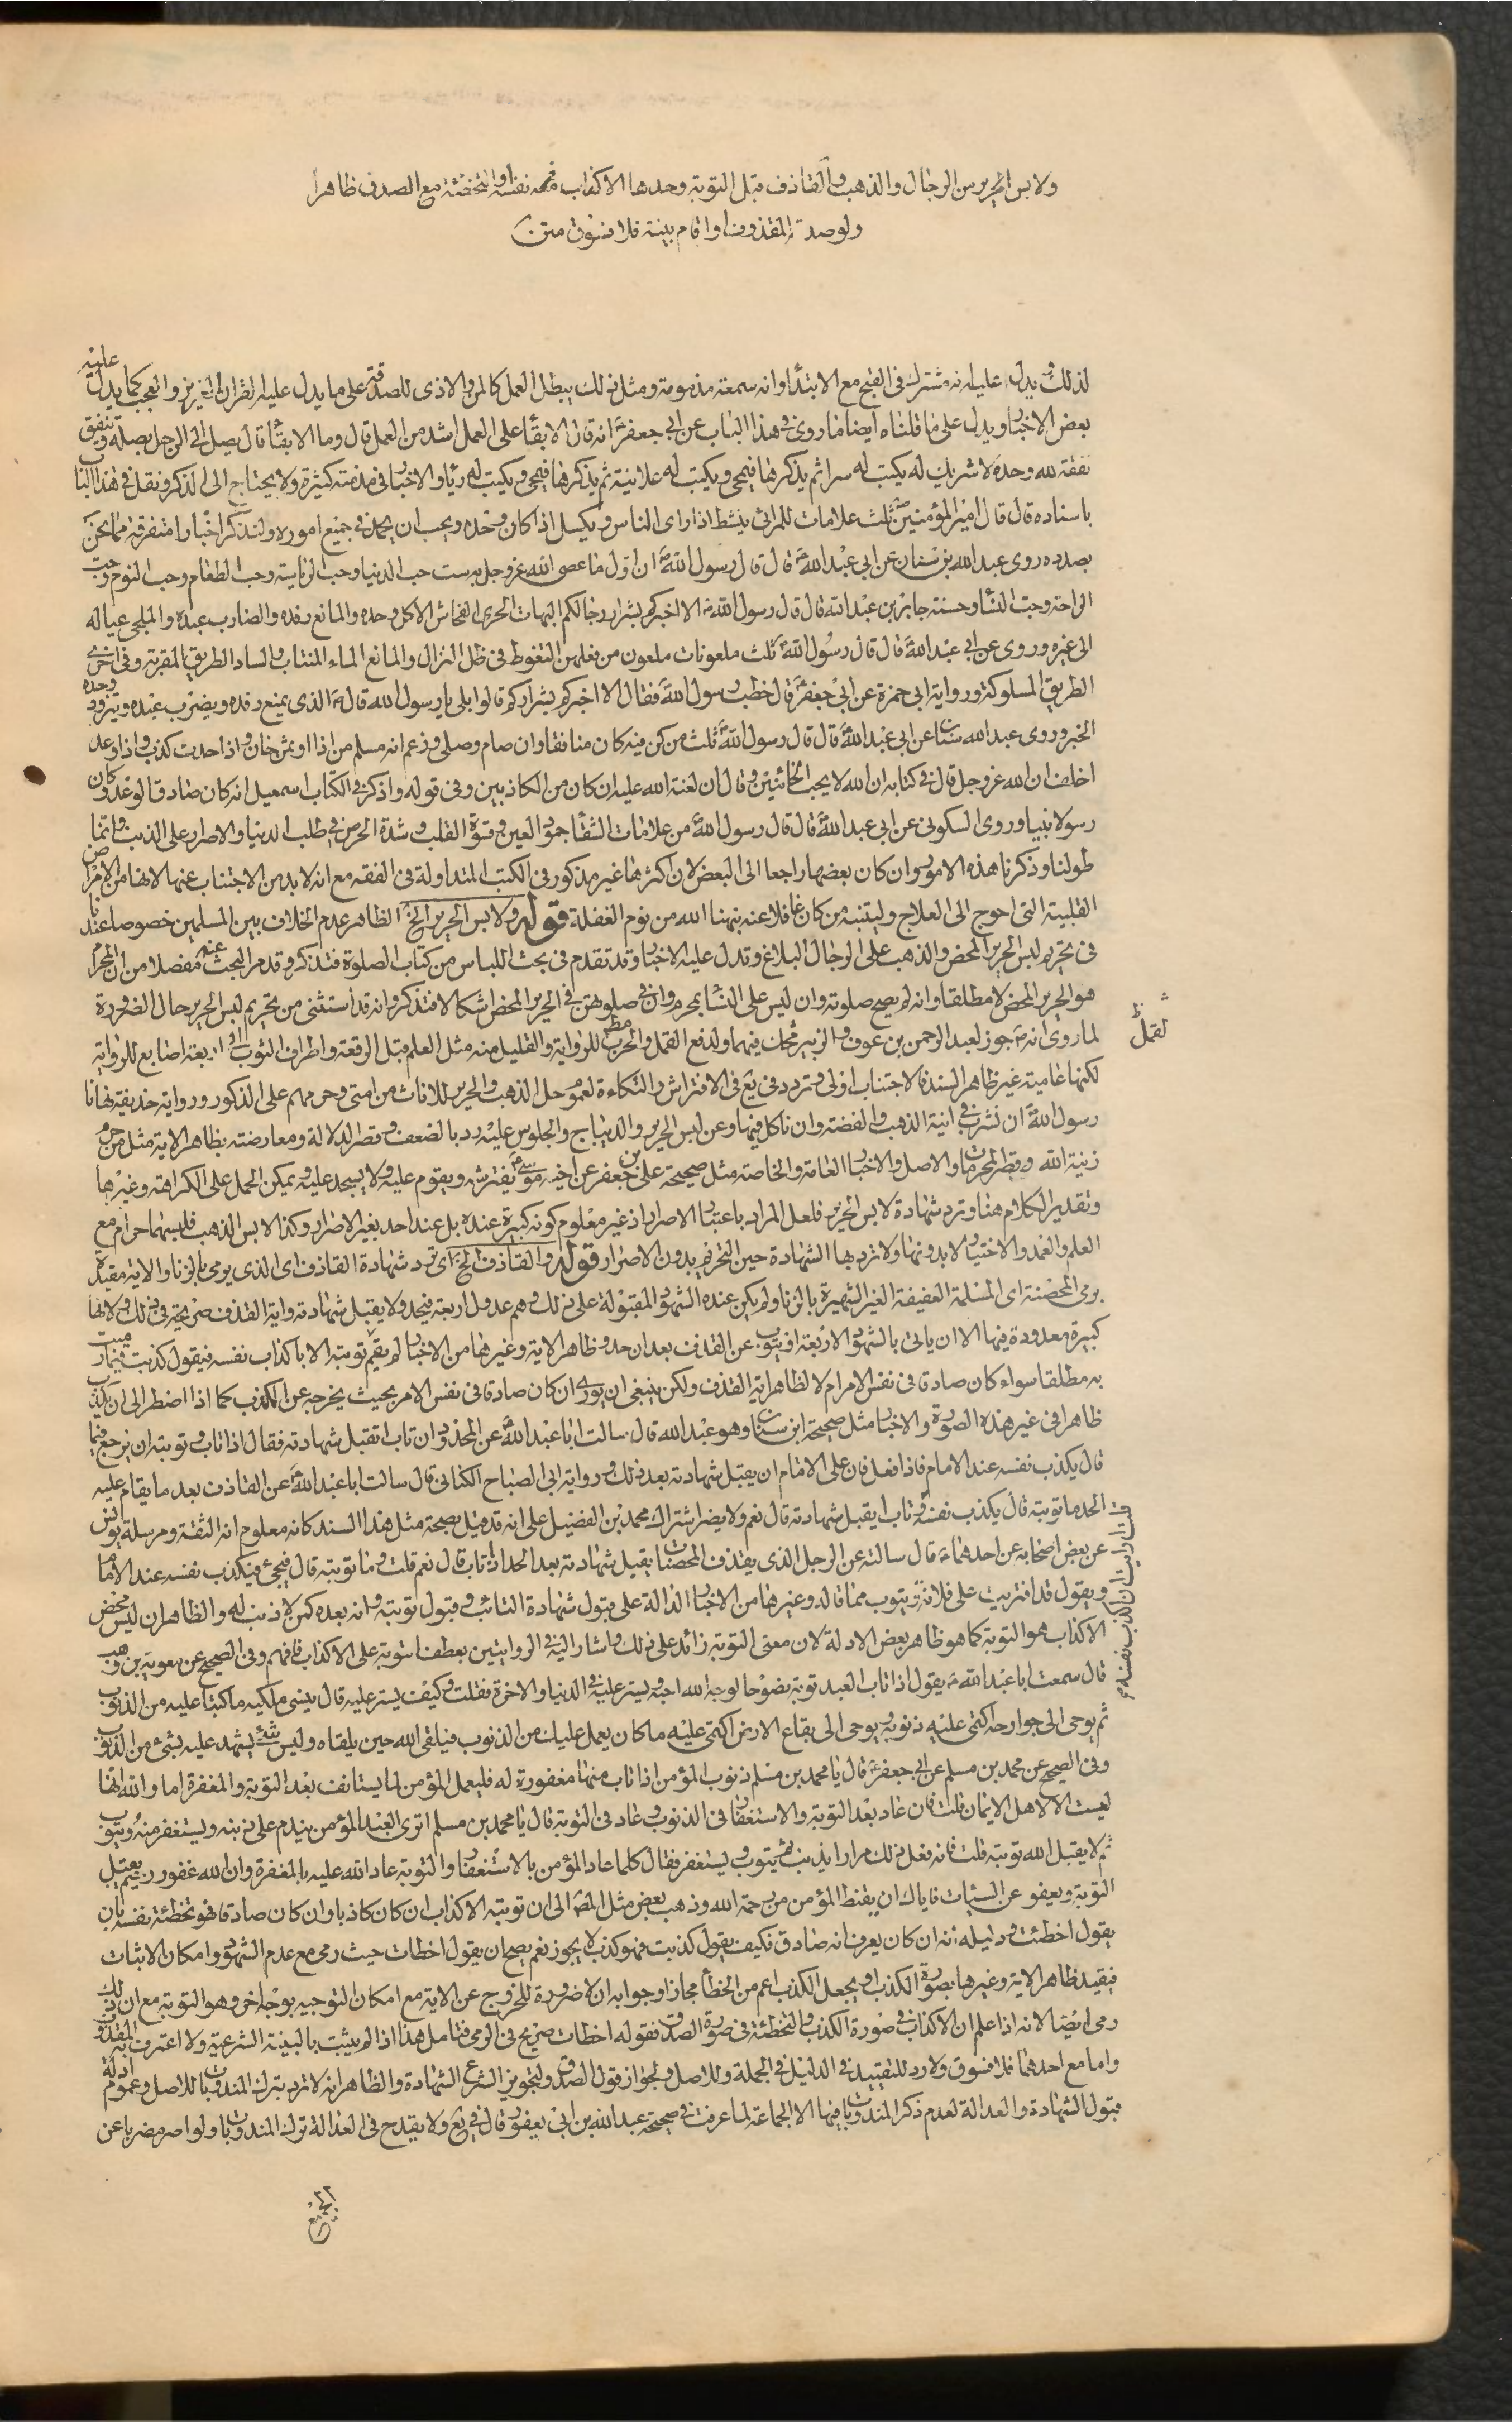 ولابس الحرير من الرجال والذهب والقاذف قبل التوبة وحدها الاكذاب معه نفسه او التخطئة مع الصدق ظاهرا
ولو صدقه المقذوف او اقام بينة فلا فسوق متن
لذلك ويدل عليه انه مشترك في القبح مع الابتداء وانه سمعة مذمومة ومثل ذلك يبطل العمل كالمن والاذى للصدقة على ما يدل عليه القران العزيز والعجب كما يدل عليه
بعض الاخبار ويدل على ما قلناه ايضا ما روى في هذا الباب عن ابي جعفر ع انه قال الابقاء على العمل اشد من العمل قال وما الابقاء قال يصل الرجل بصلة وينفق
نفقة لله وحده لا شريك له يكتب له سرا ثم يذكرها فيمحى ويكتب له علانية ثم يذكرها فيمحى ويكتب له رياء والاخبار في مذمته كثيرة ولا يحتاج الى الذكر ونقل في هذا الباب
باسناده قال قال امير المؤمنين ع ثلث علامات للمرائي ينشط اذا راى الناس ويكسل اذا كان وحده ويحب ان يحمد في جميع اموره ولنذكر اخبارا متفرقة مما نحن
بصدده روى عبد الله بن سنان عن ابي عبد الله ع قال قال رسول الله ص ان اول ما عصى الله عز وجل به ست حب الدنيا وحب الرياسة وحب الطعام وحب النوم وحب
الراحة وحب النساء وحسنة جابر بن عبد الله قال قال رسول الله ص الا اخبركم بشرار رجالكم البهات الجرى الفحاش الاكل وحده والمانع رفده والضارب عبده والملجى عياله
الى غيره وروى عن ابي عبد الله ع قال قال رسول الله ص ثلث ملعونات ملعون من فعلهن التغوط في ظل النزال والمانع الماء المنتاب والساد الطريق المقربة وفي اخرى
الطريق المسلوكة ورواية ابي حمزة عن ابي جعفر ع قال خطب رسول الله ص فقال الا اخبركم بشراركم قالوا بلى يا رسول الله قال الذي يمنع رفده ويضرب عبده ويتزود وحده
الخبر وروى عبد الله سنان عن ابي عبد الله ع قال قال رسول الله ص ثلث من كن فيه كان منافقا وان صام وصلى وزعم انه مسلم من اذا اوتمن خان واذا حدث كذب واذا وعد
اخلف ان الله عز وجل قال في كتابه ان الله لا يحب الخائنين وقال ان لعنة الله عليه ان كان من الكاذبين وفي قوله واذكر في الكتاب اسمعيل انه كان صادق الوعد وكان
رسولا نبيا وروى السكوني عن ابي عبد الله ع قال قال رسول الله ص من علامات الشقاء جمود العين وقسوة القلب وشدة الحرص في طلب الدنيا والاصرار على الذنب وانما
طولنا وذكرنا هذه الامور وان كان بعضها راجعا الى البعض لان اكثرها غير مذكور في الكتب المتداولة في الفقه مع انه لا بد من الاجتناب عنها الا انها من الامراض
القلبية التي احوج الى العلاج وليتنبه من كان غافلا عنه نبهنا الله من نوم الغفلة قوله ولابس الحرير الخ الظاهر عدم الخلاف بين المسلمين خصوصا عندنا
في تحريم لبس الحرير المحض والذهب على الرجال البلاغ وتدل عليه الاخبار وقد تقدم في بحث اللباس من كتاب الصلوة فتذكر وقد مر البحث عنه مفصلا من ان المحرم
هو الحرير المحض لا مطلقا وانه لم يصح صلوته وان ليس على النساء بمحرم وان في صلوتهن في الحرير المحض اشكالا فتذكر وانه قد استثنى من تحريم لبس الحرير حال الضرورة
لما روى انه ص جوز لعبد الرحمن بن عوف والزبير فيهما ولدفع القمل والحرب للرواية والقليل منه مثل العلم قبل الرقعة واطراف الثوب الى اربعة اصابع للرواية
لقمل
لكنها عامية غير ظاهر السند فالاجتناب اولى وتردد في يع في الافتراش والتكاءة لعموم حل الذهب والحرير للاناث من امتي وحرمهم على الذكور ورواية حذيفة نهانا
رسول الله ص ان نشرب في انية الذهب والفضة وان ناكل فيها وعن لبس الحرير والديباج والجلوس عليه رد بالضعف وقصر الدلالة ومعارضته بظاهر الاية مثل من حرم
زينة الله وقصر المحرمات والاصل والاخبار العامة والخاصة مثل صحيحة علي بن جعفر عن اخيه موسى ع يفترشه ويقوم عليه ولا يسجد عليه ويمكن الحمل على الكراهة وغيرها
وتقدير الكلام هنا وترد شهادة لابس الحرير فلعل المراد باعتبار الاصرار اذ غير معلوم كونه كبيرة عنده بل عند احد بغير الاصرار وكذا لابس الذهب فلبسهما حرام مع
العلم والعمد والاختيار لا بدونها ولا ترد بها الشهادة حين التحريم بدون الاصرار قوله والقاذف الخ اي ترد شهادة القاذف اي الذي يرمى بالزنا والاية مقيدة
برمي المحصنة اي المسلمة العفيفة الغير الشهيرة بالزنا ولم يكن عنده الشهود المقبولة على ذلك وهم عدول اربعة فيحد ولا يقبل شهادته واية القذف صريحة في ذلك ولانها
كبيرة معدودة فيها الا ان ياتى بالشهود الاربعة او يتوب عن القذف بعد ان حد وظاهر الاية وغيرها من الاخبار لم يقم توبته الا باكذاب نفسه فيقول كذبت فيما رميت
به مطلقا سواء كان صادقا في نفس الامر ام لا لظاهر اية القذف ولكن ينبغي ان يورى ان كان صادقا في نفس الامر بحيث يخرجه عن الكذب كما اذا اضطر الى ان يكذب
ظاهرا في غير هذه الصورة والاخبار مثل صحيحة ابن سنان وهو عبد الله قال سالت ابا عبد الله ع عن المحدود ان تاب اتقبل شهادته فقال اذا تاب وتوبته ان يرجع فيما
قال يكذب نفسه عند الامام فاذا فعل فان على الامام ان يقبل شهادته بعد ذلك ورواية ابي الصباح الكناني قال سالت ابا عبد الله ع عن القاذف بعد ما يقام عليه
الحد ما توبته قال يكذب نفسه وتاب ايقبل شهادته قال نعم ولا يضر اشتراك محمد بن الفضيل على انه قد قيل بصحة مثل هذا السند كانه معلوم انه الثقة ومرسلة يونس
قلت ارايت ان اكذب نفسه
عن بعض اصحابه عن احدهما ع قال سالته عن الرجل الذي يقذف المحصنات يقبل شهادته بعد الحد اذا تاب قال نعم قلت وما توبته قال فيجيء فيكذب نفسه عند الامام
ويقول قد افتريت على فلانة ويتوب مما قاله وغيرها من الاخبار الدالة على قبول شهادة التائب وقبول توبته وانه بعده كمن لا ذنب له والظاهر ان ليس محض
الاكذاب هو التوبة كما هو ظاهر بعض الادلة لان معنى التوبة زائد على ذلك واشار اليه في الروايتين بعطف التوبة على الاكذاب فافهم وفي الصحيح عن معوية بن وهب
قال سمعت ابا عبد الله ع يقول اذا تاب العبد توبة نصوحا لوجه الله احبه ويستر عليه في الدنيا والاخرة فقلت وكيف يستر عليه قال ينسى ملكيه ما كتبا عليه من الذنوب
ثم يوحى الى جوارحه اكتمى عليه ذنوبه ويوحى الى بقاع الارض اكتمى عليه ما كان يعمل عليك من الذنوب فيلقى الله حين يلقاه وليس شيء يشهد عليه بشيء من الذنوب
وفي الصحيح عن محمد بن مسلم عن ابي جعفر ع قال يا محمد بن مسلم ذنوب المؤمن اذا تاب منها مغفورة له فليعمل المؤمن لما يستانف بعد التوبة والمغفرة اما والله انها
ليست الا لاهل الايمان قلت فان عاد بعد التوبة والاستغفار في الذنوب وعاد في التوبة قال يا محمد بن مسلم اترى العبد المؤمن يندم على ذنبه ويستغفر منه ويتوب
ثم لا يقبل الله توبته قلت فانه فعل ذلك مرارا يذنب ثم يتوب ويستغفر فقال كلما عاد المؤمن بالاستغفار والتوبة عاد الله عليه بالمغفرة وان الله غفور رحيم يقبل
التوبة ويعفو عن السيئات فاياك ان يقنط المؤمن من رحمة الله وذهب بعض مثل المص الى ان توبته الاكذاب ان كان كاذبا وان كان صادقا فهو تخطئة نفسه بان
يقول اخطئت ودليله انه ان كان يعرف انه صادق فكيف يقول كذبت فهو كذب لا يجوز نعم يصح ان يقول اخطات حيث رمى مع عدم الشهود وامكان الاثبات
فيقيد ظاهر الاية وغيرها بصورة الكذب او يجعل الكذب اعم من الخطأ مجازا وجوابه ان لا ضرورة للخروج عن الاية مع امكان التوجيه بوجه اخر وهو التوبة مع ان ذلك
رمى ايضا لانه اذا علم ان الاكذاب في صورة الكذب والتخطئة في صورة الصدق فقوله اخطات صريح في الرمى فتامل هذا اذا لم يثبت بالبينة الشرعية ولا اعترف به المقذوف
واما مع احدهما فلا فسوق ولا رد للتقييد في الدليل في الجملة وللاصل ولجواز قول الصدق ولتجويز الشرع الشهادة والظاهر انه لا ترد بترك المندوبات للاصل وعموم ادلة
قبول الشهادة والعدالة لعدم ذكر المندوبات فيها الا الجماعة لما عرفت في صحيحة عبد الله بن ابي يعفور قال في يع ولا يقدح في العدالة ترك المندوبات ولو اصر مضربا عن
الجميع